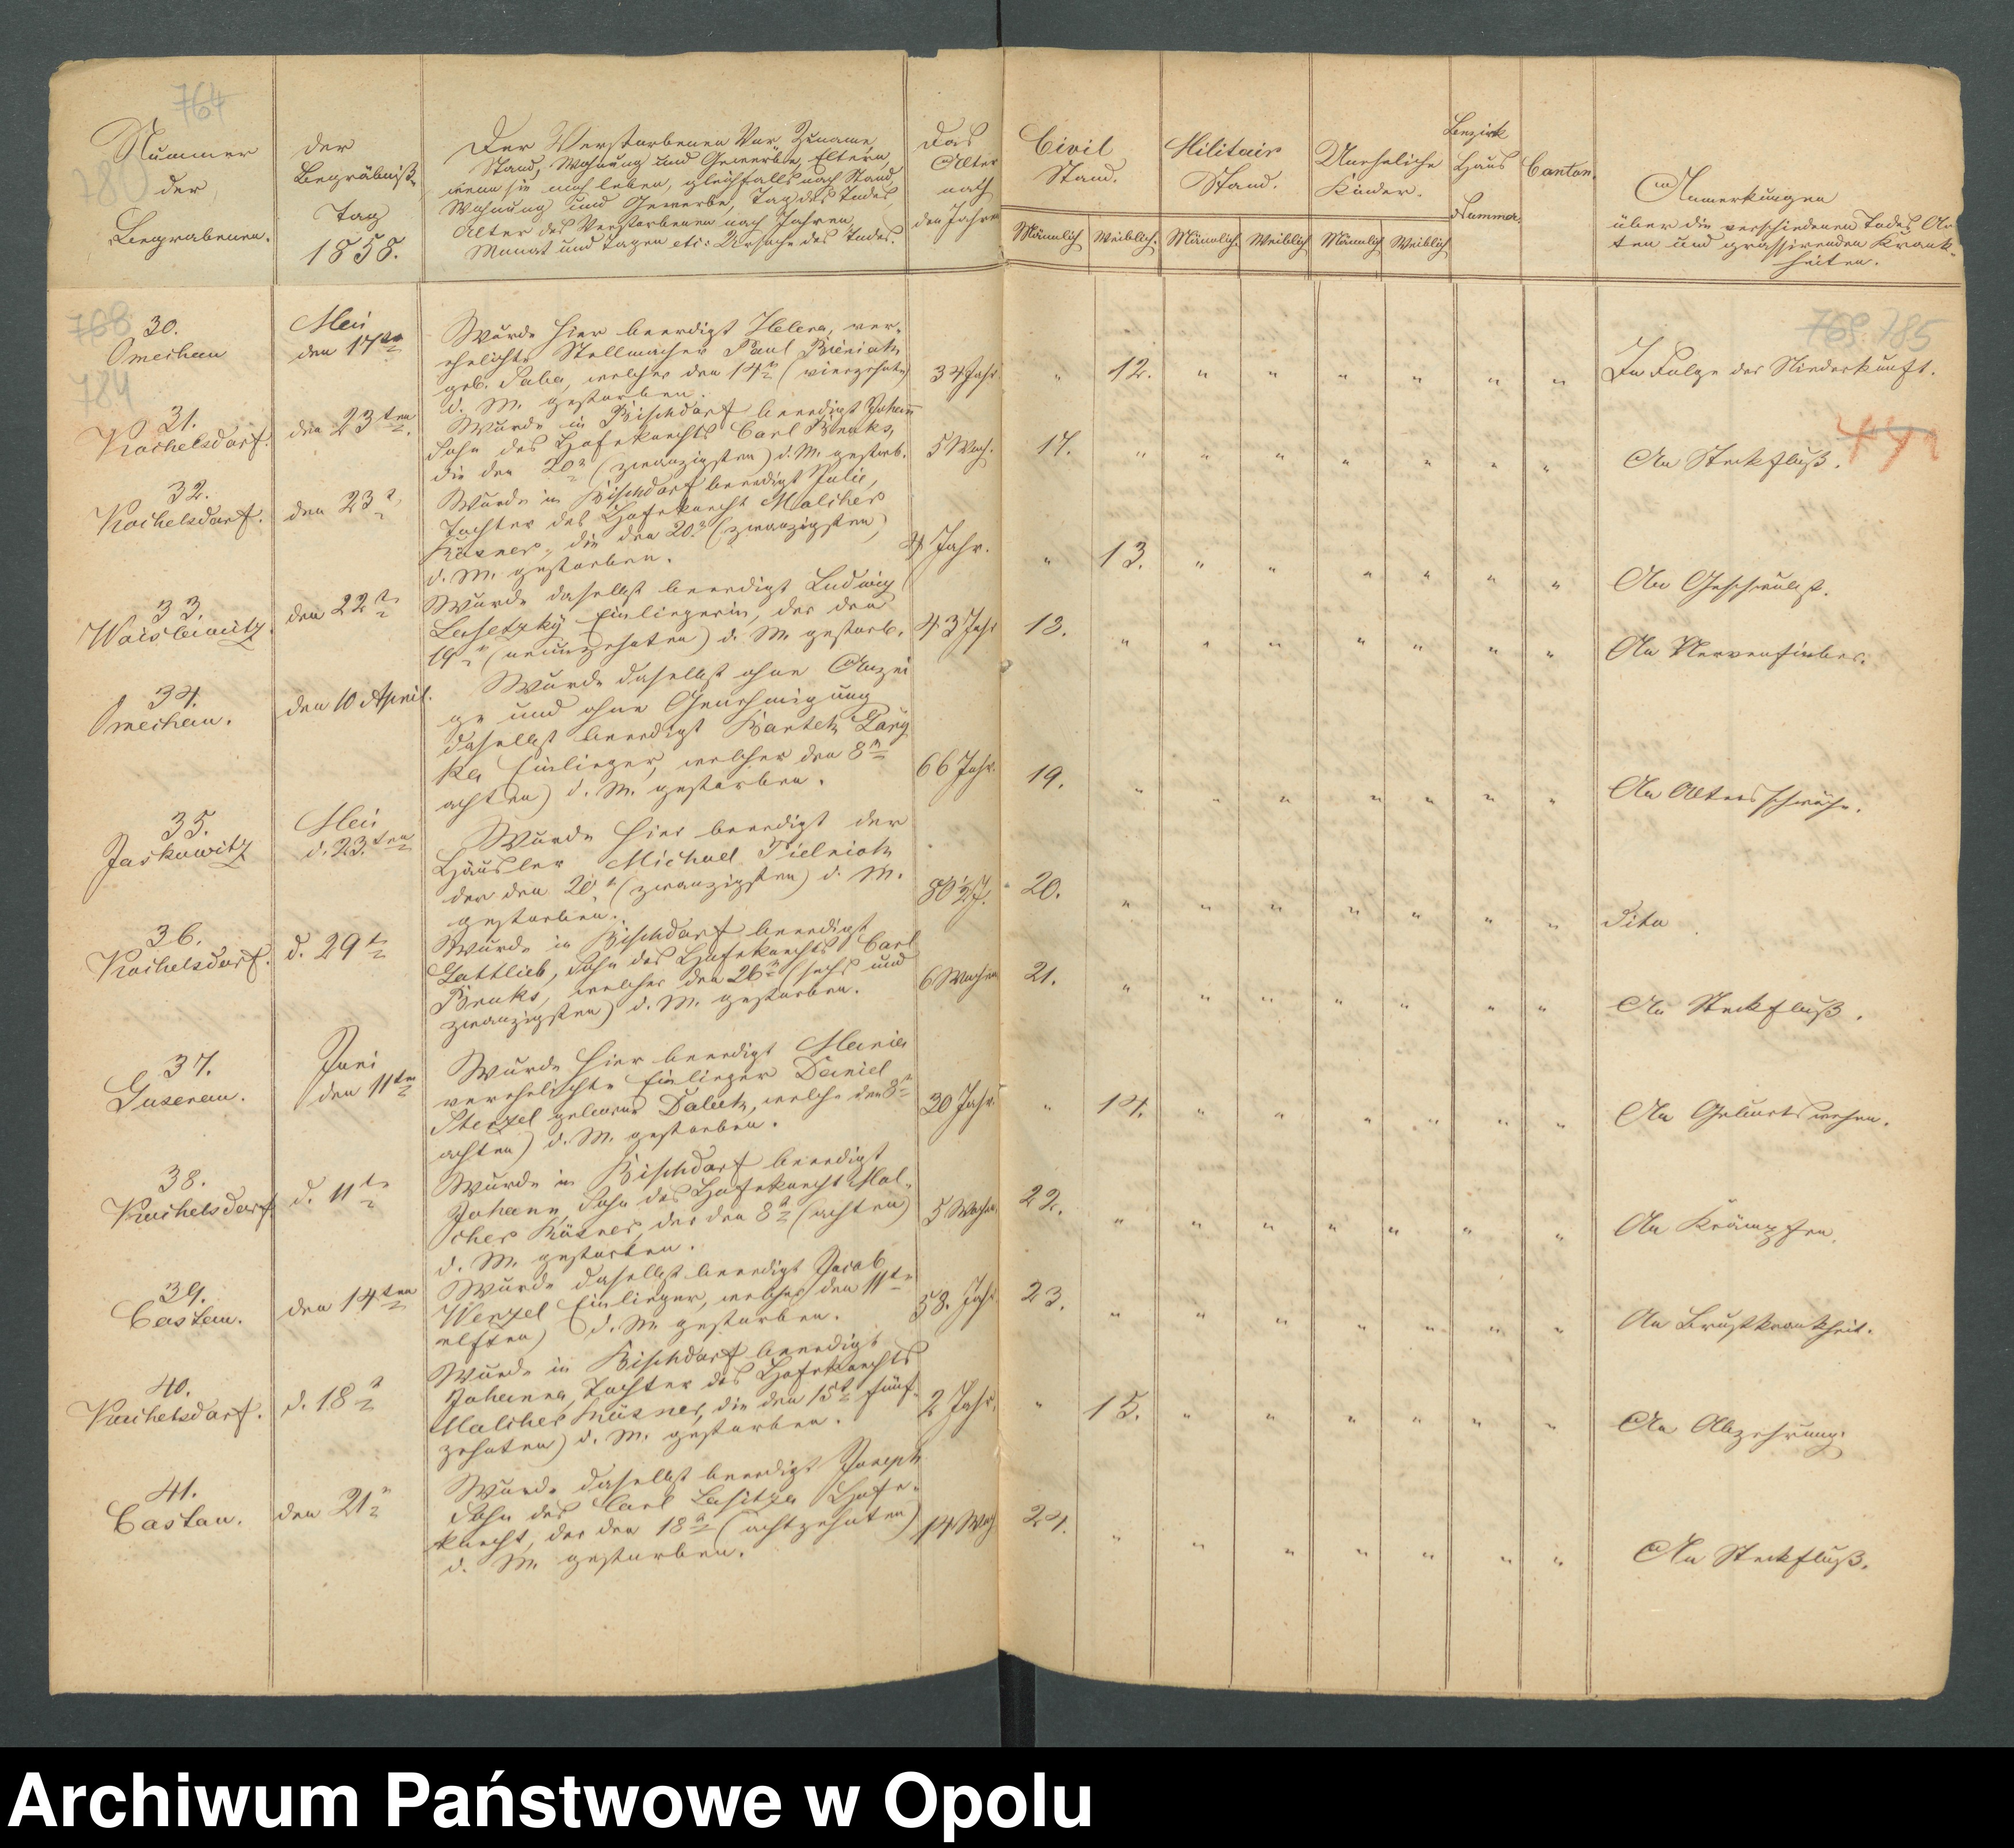 764
780
Nummer
der
Begrabenen.
der
Begräbniß-
Tag
1858.
Der Verstorbenen Vor, Zuname,
Stand, Wohnung und Gewerbe, Eltern,
wenn sie noch leben, gleichfalls nach Stand,
Wohnung und Gewerbe, Tag des Todes,
Alter des Verstorbenen nach Jahren,
Monat und Tagen etc: Ursache des Todes.
Das
Alter
nach
den Jahren
Civil
Stand.
Militair
Stand.
Uneheliche
Kinder.
Bezirk
Haus
Nummer.
Canton.
Anmerkungen
über die verschiedenen Todes Ar-
ten und grassirenden Krank-
heiten.
Männlich Weiblich. Männlich. Weiblich Männlich Weiblich
768
784
768. 785
30.
Omechau
Mai
den 17ten
Wurde hier beerdigt Helena, ver-
ehelichte Stellmacher Paul
geb. welcher den 14n (vierzehnten)
d. M. gestorben.
34 Jahr.
" 12. " " " " " "
In Folge der Niederkunft.
31.
Kochelsdorf.
den 23ten.
Wurde in Bischdorf beerdigt Johann
Sohn des Hofeknechts Carl
die den 20n (zwanzigsten) d. M. gestorb.
5 Woch.
17. " " " " " " "
An Steckfluß.
32.
Kochelsdorf.
den 23n
Wurde in Bischdorf beerdigt Julie,
Tochter des Hofeknecht Malcher
die den 20n (zwanzigsten)
d. M. gestorben.
4 Jahr.
" 13. " " " " " "
An Geschwulst.
33.
den 22n
Wurde daselbst beerdigt Ludwig
Einliegerin, der den
19n (neunzehnten) d. M. gestorb.
43 Jahr
18. " " " " " " "
An Nervenfieber.
34.
Omechau.
den 10 April.
Wurde daselbst ohne Anzei
ge und ohne Genehmigung
daselbst beerdigt
Einlieger, welcher den 8n
achten) d. M. gestorben.
66 Jahr.
19. " " " " " " "
An Altersschwäche.
35.
Jaskowitz
Mai
d. 23ten
Wurde hier beerdigt der
Häusler Michael
der den 20n (zwanzigsten) d. M.
gestorben.
80 1/2 J.
20. " " " " " " "
Dito
36.
Kochelsdorf.
d. 29n
Wurde in Bischdorf beerdigt
Gottlieb, Sohn des Hofeknechts Carl
welcher den 26n (sechs und
zwanzigsten) d. M. gestorben.
6 Wochen
21. " " " " " " "
An Steckfluß.
37.
Gusenau.
Juni
den 11ten
Wurde hier beerdigt Maria
verehelichte Einlieger Daniel
geborne welche den 8n
achten) d. M. gestorben.
30 Jahr.
" 14. " " " " " "
An Geburtswehen.
38.
Kochelsdorf
d. 11n
Wurde in Bischdorf beerdigt
Johann, Sohn des Hofeknecht Mal-
cher der den 8n (achten)
d. M. gestorben.
5 Wochen
22. " " " " " " "
An Krämpfen.
39.
Costau.
den 14ten
Wurde daselbst beerdigt Jacob
Wenzel Einlieger, welcher den 11n
elften) d. M. gestorben.
58. Jahr
23. " " " " " " "
An Brustkrankheit.
40.
Kochelsdorf.
d. 18n
Wurde in Bischdorf beerdigt
Johanna, Tochter des Hofeknechts
Malcher die den 15n fünf-
zehnten) d. M. gestorben.
2 Jahr.
" 15. " " " " " "
An Abzehrung.
41.
Costau.
den 21n
Wurde daselbst beerdigt Joseph
Sohn des Carl Hofe-
knecht, der den 18n (achtzehnten)
d. M. gestorben.
14 Woch
24. " " " " " " "
An Steckfluß.
Archiwum Państwowe w Opolu